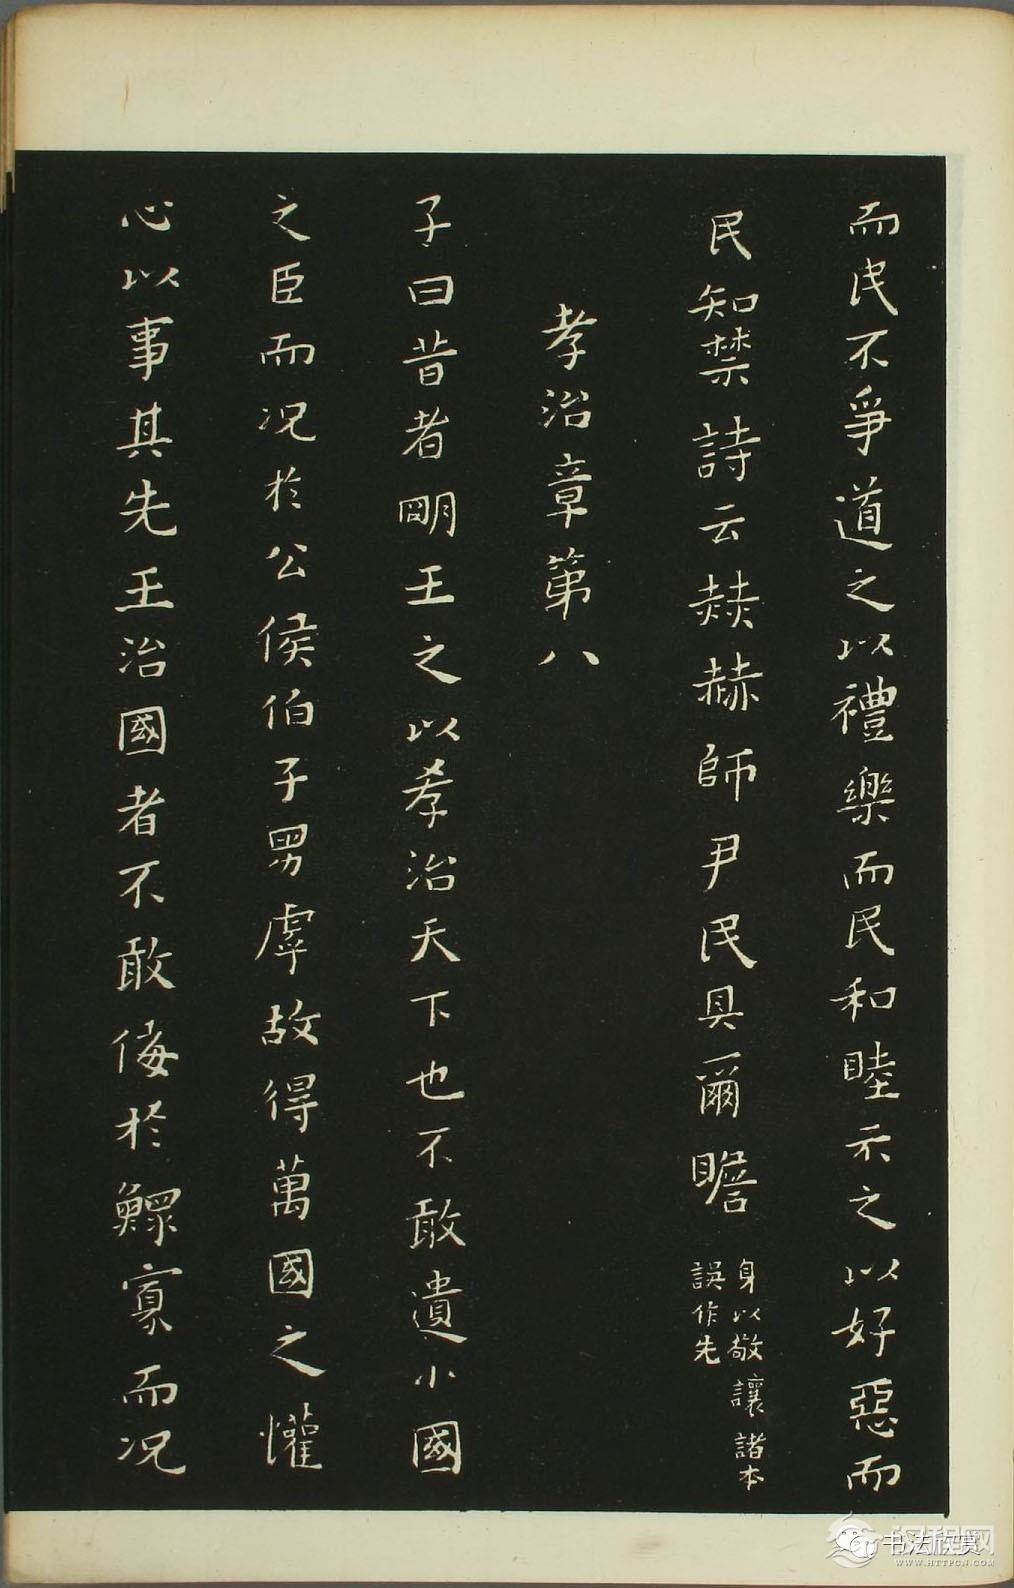 而民不爭道之以禮樂而民和睦示之以好惡而
民知禁詩云赫赫師尹民具爾瞻
身以敬讓諸本
誤作先
孝治章第八
子曰昔者明王之以孝治天下也不敢遺小國
之臣而况於公侯伯子男虖故得萬國之懽
心以事其先王治國者不敢侮於鰥寡而况
书法欣赏
WWW.HTTPCN.COM